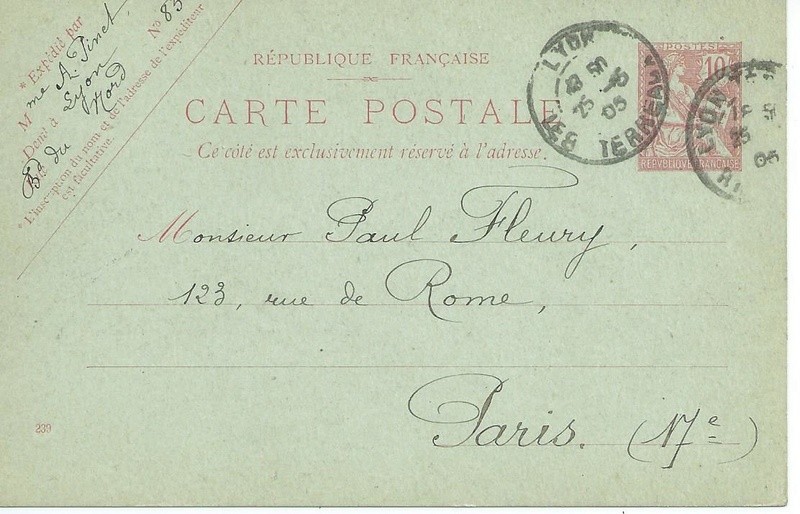 * Expédié par
Mme A. Pinet,
Demt à Lyon
Bd du Nord
No 83
* L'inscription du nom et de l'adresse de l'expéditeur
est facultative.
RÉPUBLIQUE FRANÇAISE
CARTE POSTALE
Ce côté est exclusivement réservé à l'adresse.
POSTES
10
REPVBLIQVE FRANÇAISE
LYON
LES TERREAUX
LYON
Monsieur Paul Fleury,
123, rue de Rome,
Paris. (17e)
239